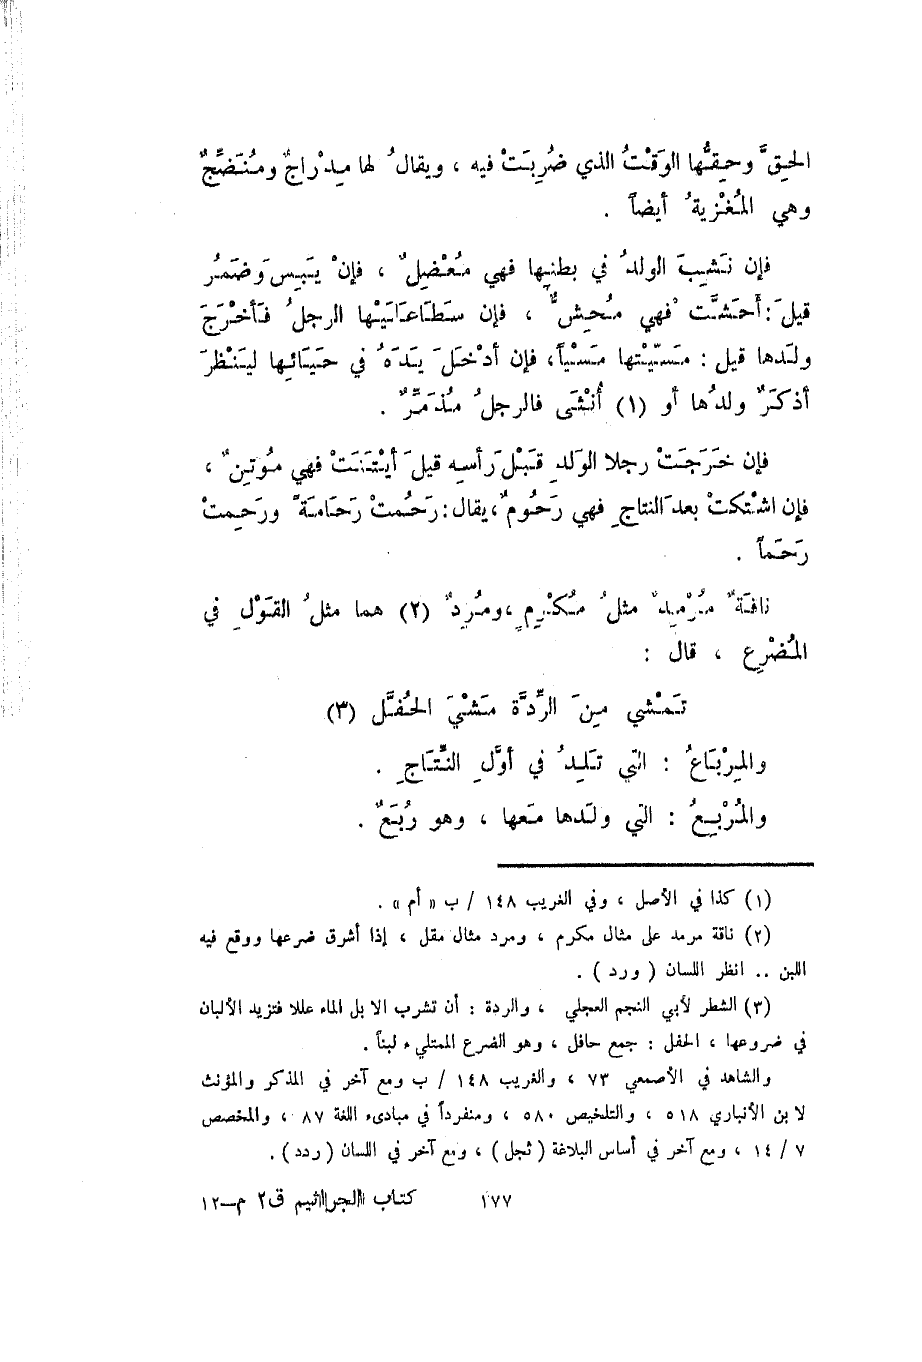 الحِقَّ وحِقُّها الوَقْتُ الذي ضُرِبَتْ فيه ، ويقالُ لها مِدْراجٌ ومُنَضِّجٌ
وهي المُغْزِيةُ أيضاً .
فإن نَشِبَ الولدُ في بطنِها فهي مُعْضِلٌ ، فإنْ يَبِسَ وَضَمُرَ
قيلَ : أَحَشَّتْ فهي مُحِشٌّ ، فإن سَطَا عَلَيْها الرجلُ فَأَخْرَجَ
ولَدها قيل : مَسَيْتها مَسْياً ، فإن أدْخَلَ يَدَهُ في حَيَائِها ليَنْظُرَ
أذكَرٌ ولدُها أو (١) أُنْثَى فالرجلُ مُذَمِّرٌ .
فإن خَرَجَتْ رجلا الوَلدِ قَبْلَ رَأسِه قيلَ أَيْتَنَتْ فهي مُوتِنٌ ،
فإن اشْتكتْ بعدَ النتاجِ فهي رَحُومٌ ، يقال : رَحُمتْ رَحَامةً ورَحِمتْ
رَحَماً .
ناقةٌ مُرْمِدٌ مثلُ مُكْرِمٍ ، ومُرِدٌ (٢) هما مثلُ القَوْلِ في
المُضْرِعِ ، قال :
تَمْشي مِنَ الرِّدَّة مَشْيَ الحُفَّل (٣)
والمِرْبَاعُ : التي تَلِدُ في أوَّلِ النِّتَاجِ .
والمُرْبِعُ : التي ولَدها مَعها ، وهو رُبَعٌ .
(١) كذا في الأصل ، وفي الغريب ١٤٨ / ب « أم » .
(٢) ناقة مرمد على مثال مكرم ، ومرد مثال مقل ، إذا أشرق ضرعها ووقع فيه
اللبن .. انظر اللسان ( ورد ) .
(٣) الشطر لأبي النجم العجلي ، والردة : أن تشرب الابل الماء عللا فتزيد الألبان
في ضروعها ، الحفل : جمع حافل ، وهو الضرع الممتليء لبناً .
والشاهد في الأصمعي ٧٣ ، والغريب ١٤٨ / ب ومع آخر في المذكر والمؤنث
لابن الأنباري ٥١٨ ، والتلخيص ٥٨٠ ، ومنفرداً في مبادىء اللغة ٨٧ ، والمخصص
٧ / ١٤ ، ومع آخر في أساس البلاغة ( ثجل ) ، ومع آخر في اللسان ( ردد ) .
١٧٧ كتاب الجراثيم ق٢ م–١٢